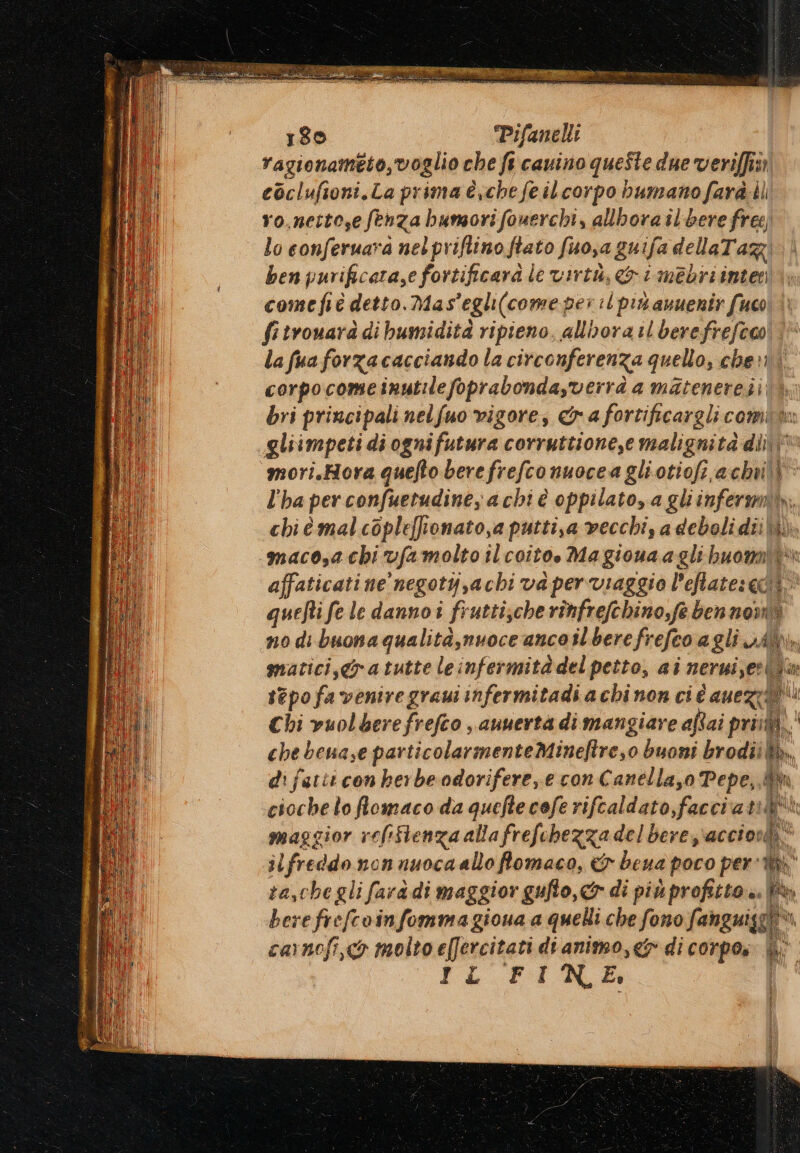 180 Pisanelli
ragionamẽto, voglio che si cauino queste due verissi
cõclusioni. La prima è, che se il corpo humano sarà
ro. netto, e senza humori souerchi, allhora il bere
lo conseruarà nel pristino stato suo, a guisa della
ben purificata, e fortificarà le virtù, & i mẽbri
come si è detto. Ma s'egli (come per il più auuenir suco
si trouarà di humidità ripieno. allhora il bere fresco
la sua forza cacciando la circonferenza quello, che
corpo come inutile soprabonda, verrà a mãtenere
bri principali nel suo vigore, & a fortificargli
gli impeti di ogni futura corruttione, e malignità
mori. Hora questo bere fresco nuoce a gli otiosi, a chi
l'ha per consuetudine, a chi è oppilato, a gli infermi
chi è mal cõplessionato, a putti, a vecchi, a deboli di
maco, a chi vsa molto il coito. Ma gioua a gli huomi
affaticati ne' negotij, a chi và per viaggio l'estate:
questi se le danno i frutti, che rinfreschino, se ben
no di buona qualità, nuoce anco il bere fresco a gli
matici, & a tutte le infermità del petto, ai nerui,
tẽpo fa venire graui infermitadi a chi non ci è
Chi vuol bere fresco, auuerta di mangiare assai
che beua, e particolarmente Minestre, o buoni brodi
di fatti con herbe odorifere, e con Canella, o Pepe,
cioche lo stomaco da queste cose riscaldato, faccia
maggior resistenza alla freschezza del bere,
il freddo non nuoca allo stomaco, & beua poco per
ta, che gli farà di maggior gusto, & di più profitto.
bere fresco in somma gioua a quelli che sono
carnosi, & molto essercitati di animo, & di corpo.
IL FINE.